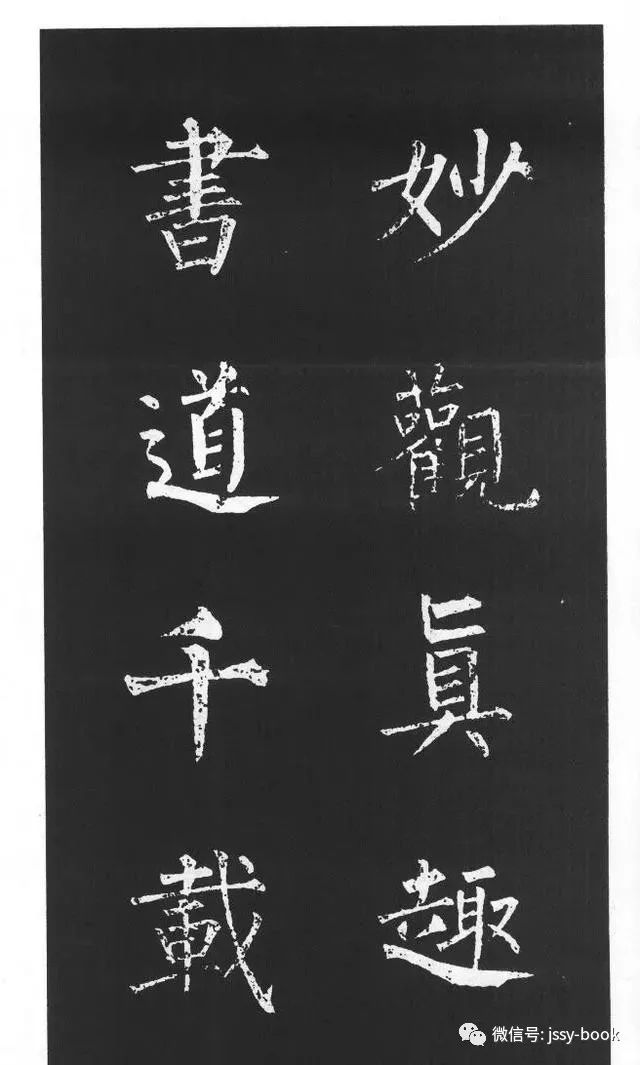 妙觀眞趣
書道千載
微信号: jssy-book